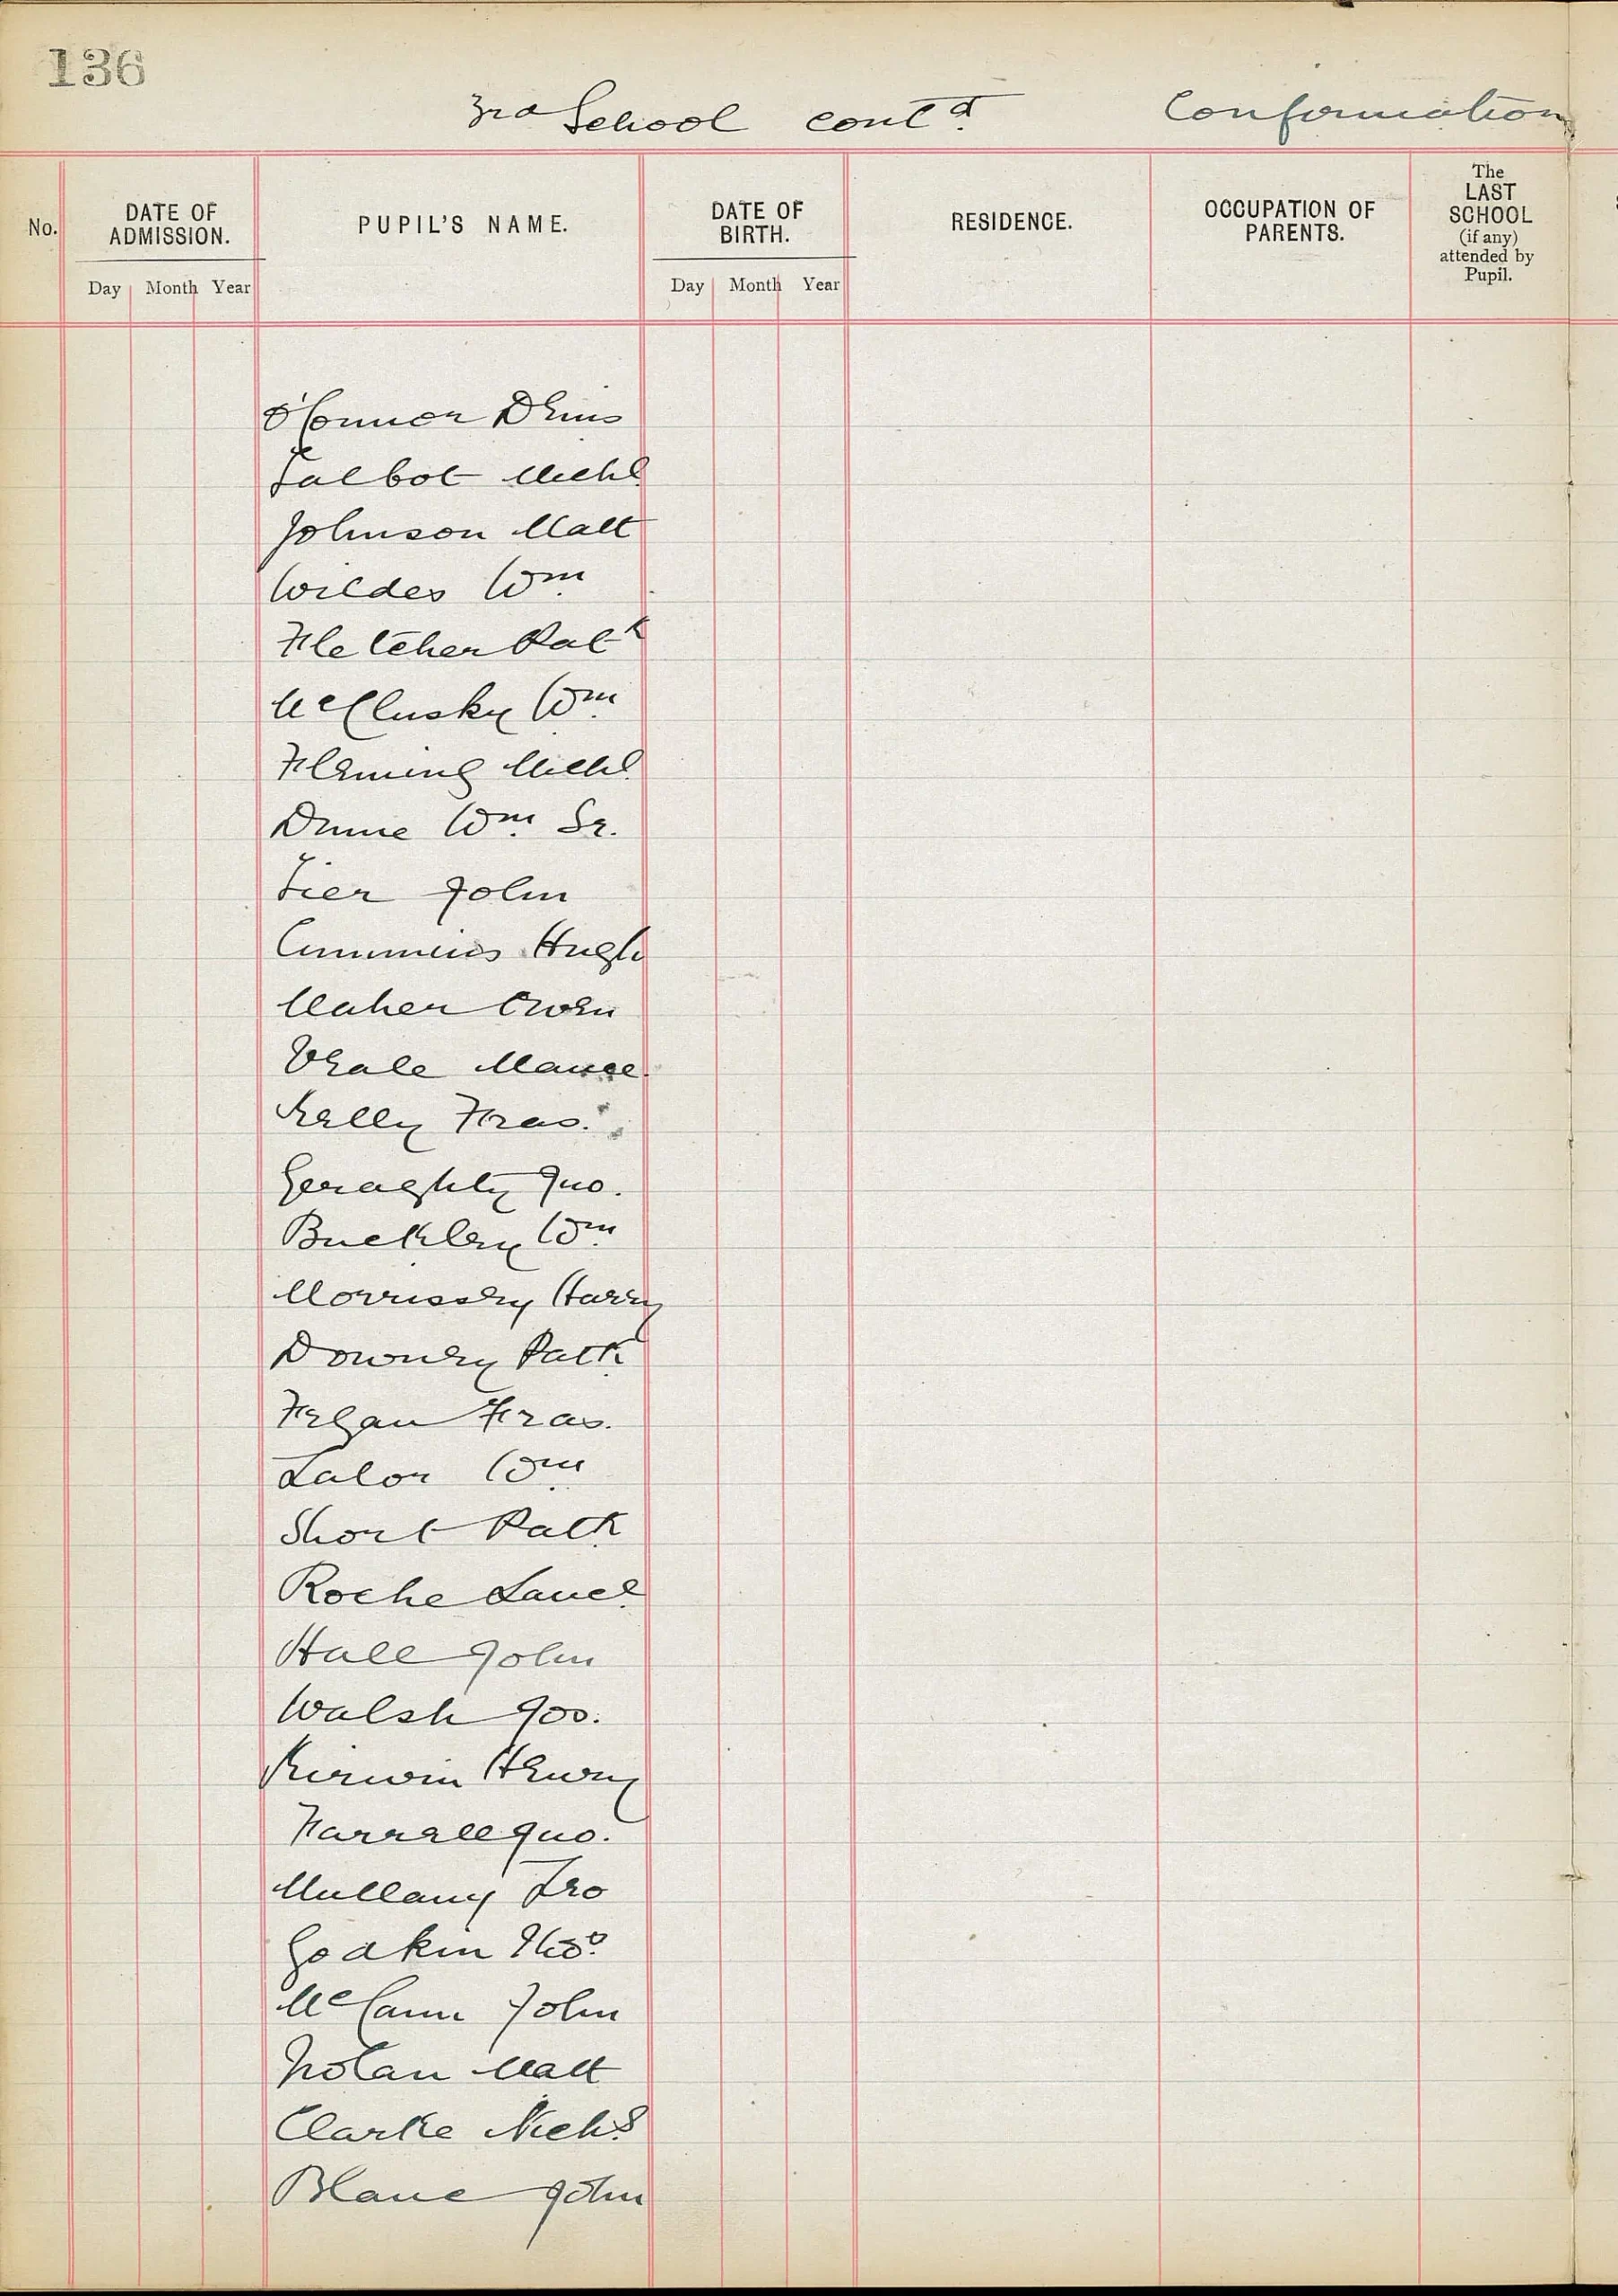 136
3rd School contd. Confirmation
No. DATE OF ADMISSION. PUPIL'S NAME. DATE OF BIRTH. RESIDENCE. OCCUPATION OF PARENTS. The LAST SCHOOL (if any) attended by Pupil.
Day Month Year Day Month Year
O'Connor Denis
Talbot Michl.
Johnson Matt
Wildes Wm.
Fletcher Patk
McClusky Wm.
Fleming Michl.
Dunne Wm. Sr.
Tier John
Cummins Hugh
Maher Owen
Veale
Kelly Fras.
Geraghty Jno.
Buckley Wm.
Morrissey Harry
Downey Patk.
Fegan Fras.
Lalor Wm.
Short Patk.
Roche Lauce.
Hall John
Walsh Jos.
Kirwin Henry
Farrell Jno.
Mullany Leo
Godkin Thos.
McCann John
Nolan Matt
Clarke Nichs.
Blane John